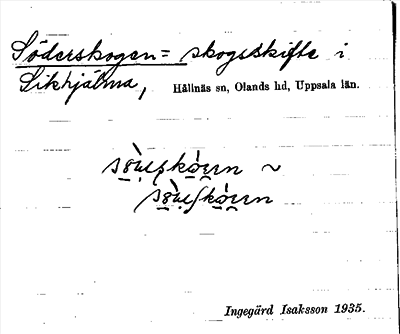 Söderskogen = skogsskifte i
Sikhjälma, Hållnäs sn, Olands hd, Uppsala län.
~
Ingegärd Isaksson 1935.